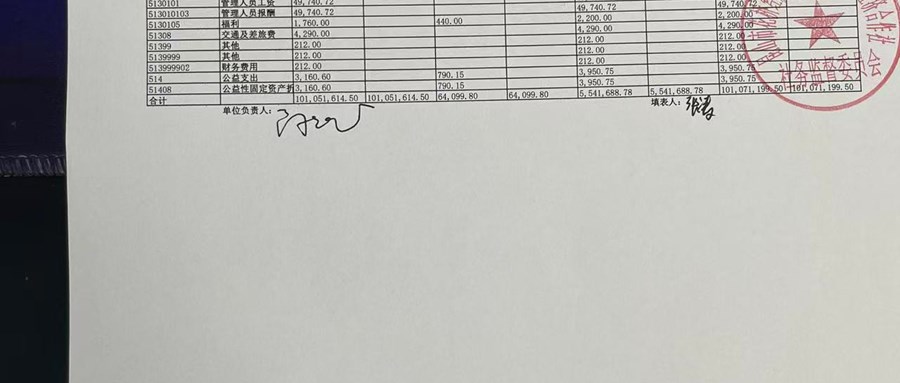 5130101 管理人员工资 49,740.72 49,740.72 49,740.72
513010103 管理人员报酬 49,740.72 49,740.72 49,740.72
5130105 福利 1,760.00 440.00 2,200.00 2,200.00
51308 交通及差旅费 4,290.00 4,290.00 4,290.00
51399 其他 212.00 212.00 212.00
5139999 其他 212.00 212.00 212.00
513999902 财务费用 212.00 212.00 212.00
514 公益支出 3,160.60 790.15 3,950.75 3,950.75
51408 公益性固定资产折 3,160.60 790.15 3,950.75 3,950.75
合计 101,051,614.50 101,051,614.50 64,099.80 64,099.80 5,541,688.78 5,541,688.78 101,071,199.50 101,071,199.50
单位负责人: 填表人:
合作社
社务监督委员会